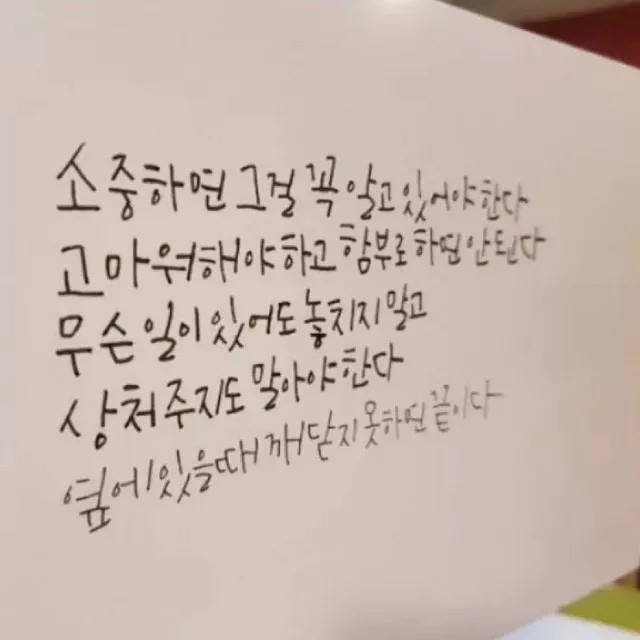 소중하면 그걸 꼭 알고 있어야 한다
고마워해야 하고 함부로 하면 안 된다
무슨 일이 있어도 놓치지 말고
상처 주지도 말아야 한다
옆에 있을 때 깨닫지 못하면 끝이다